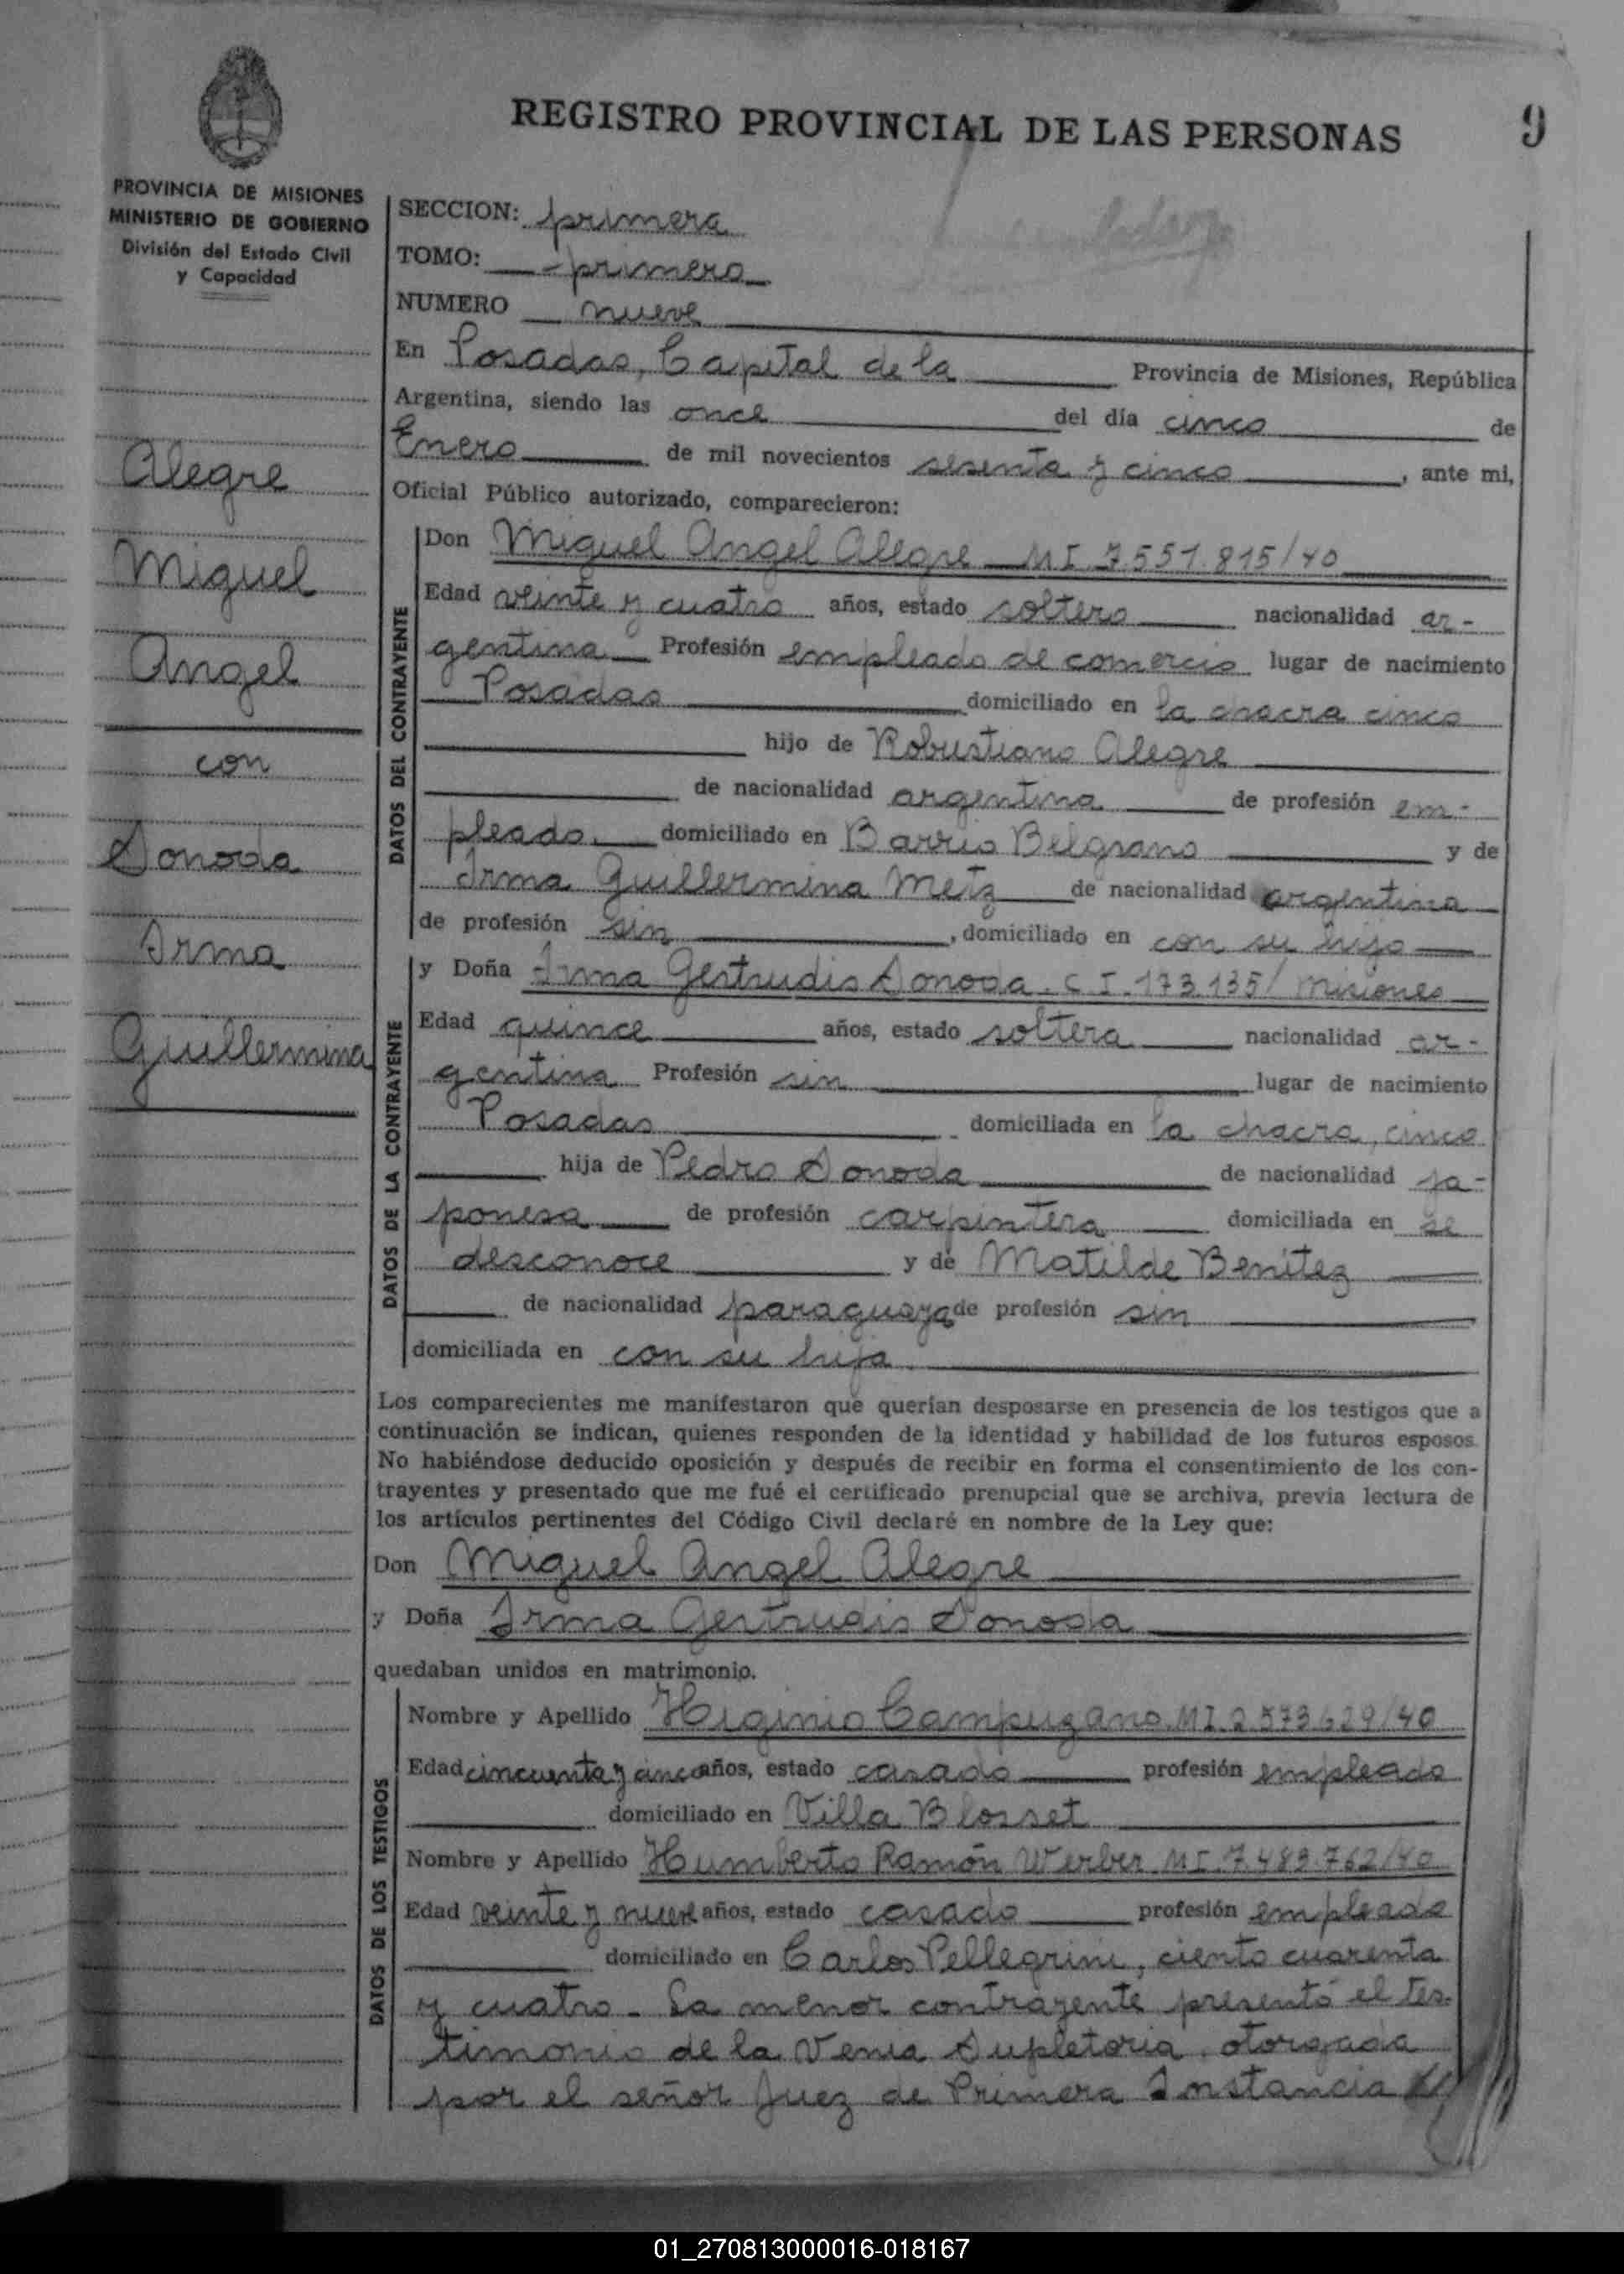 REGISTRO PROVINCIAL DE LAS PERSONAS
9
PROVINCIA DE MISIONES
MINISTERIO DE GOBIERNO
División del Estado Civil
y Capacidad
Alegre
Miguel
Angel
con
Sonoda
Irma
Guillermina
SECCION: primera
TOMO: - primero
NUMERO nueve
En Posadas, Capital de la Provincia de Misiones, República
Argentina, siendo las once del día cinco de
Enero de mil novecientos sesenta y cinco, ante mi,
Oficial Público autorizado, comparecieron:
DATOS DEL CONTRAYENTE
Don Miguel Angel Alegre M I. 7.551.815/40
Edad veinte y cuatro años, estado soltero nacionalidad ar-
gentina Profesión empleado de comercio lugar de nacimiento
Posadas domiciliado en la chacra cinco
hijo de Robustiano Alegre
de nacionalidad argentina de profesión em-
pleado. domiciliado en Barrio Belgrano y de
Irma Guillermina Metz de nacionalidad argentina
de profesión sin, domiciliado en con su hijo
DATOS DE LA CONTRAYENTE
y Doña Irma Gertrudis Sonoda. C I. 173.135/ Misiones
Edad quince años, estado soltera nacionalidad ar-
gentina Profesión sin lugar de nacimiento
Posadas domiciliada en la chacra, cinco
hija de Pedro Sonoda de nacionalidad ja-
ponesa de profesión carpintera domiciliada en se
desconoce y de Matilde Benitez
de nacionalidad paraguaya de profesión sin
domiciliada en con su hija.
Los comparecientes me manifestaron que querían desposarse en presencia de los testigos que a
continuación se indican, quienes responden de la identidad y habilidad de los futuros esposos.
No habiéndose deducido oposición y después de recibir en forma el consentimiento de los con-
trayentes y presentado que me fué el certificado prenupcial que se archiva, previa lectura de
los artículos pertinentes del Código Civil declaré en nombre de la Ley que:
Don Miguel Angel Alegre
y Doña Irma Gertrudis Sonoda
quedaban unidos en matrimonio.
DATOS DE LOS TESTIGOS
Nombre y Apellido Higinio Campuzano. MI. 2.573.629/40
Edad cincuenta y cinco años, estado casado profesión empleado
domiciliado en Villa Blosset
Nombre y Apellido Humberto Ramón Werber MI. 7.483.762/40
Edad veinte y nueve años, estado casado profesión empleado
domiciliado en Carlos Pellegrini, ciento cuarenta
y cuatro - La menor contrayente presentó el tes-
timonio de la Venia Supletoria, otorgada
por el señor Juez de Primera Instancia
01_270813000016-018167